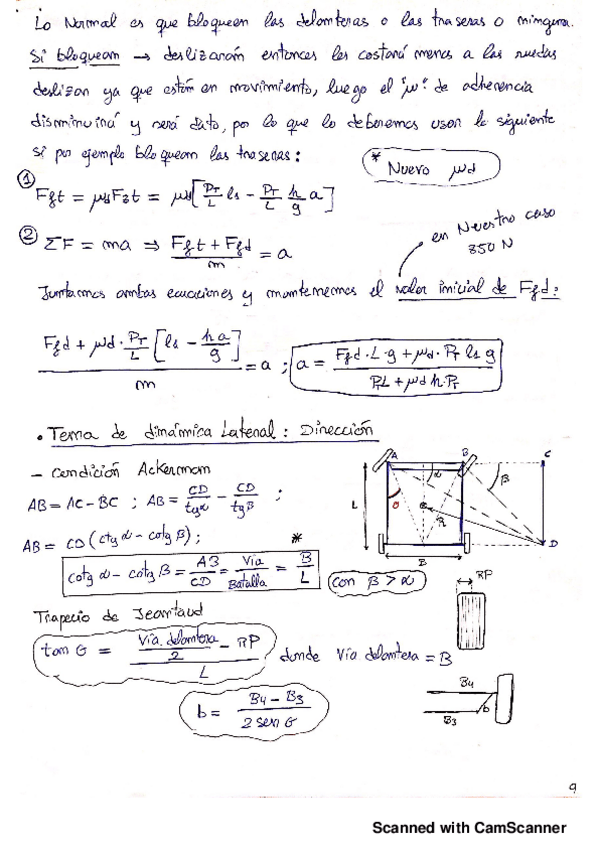 Lo Normal es que bloqueen las delanteras o las traseras o ninguna.
Si bloquean → deslizarán entonces les costará menos a las ruedas
deslizan ya que están en movimiento, luego el "μ" de adherencia
disminuirá y será dato, por lo que lo deberemos usar lo siguiente
si por ejemplo bloquean las traseras:
* Nuevo μd
① Fft = μd Fzt = μd [PT/L ls - PT/L h/g a]
② ΣF = ma ⇒ (Fft + Ffd)/m = a
en Nuestro caso
350 N
Juntamos ambas ecuaciones y mantenemos el valor inicial de Ffd:
(Ffd + μd · PT/L [ls - ha/g])/m = a ; a = (Ffd · L · g + μd · PT ls g)/(PL + μd h · PT)
• Tema de dinámica Lateral: Dirección
- Condición Ackerman
AB = AC - BC ; AB = CD/tgα - CD/tgβ ;
AB = CD (ctgα - cotgβ) ;
*
cotgα - cotgβ = AB/CD = Vía/Batalla = B/L
con β > α
A B C
α β
L θ R
D
B
Trapecio de Jeantaud
RP
tan θ = (Vía delantera/2 - RP)/L donde Vía delantera = B
b = (B4 - B3)/(2 sen θ)
B4
B3 b
9
Scanned with CamScanner